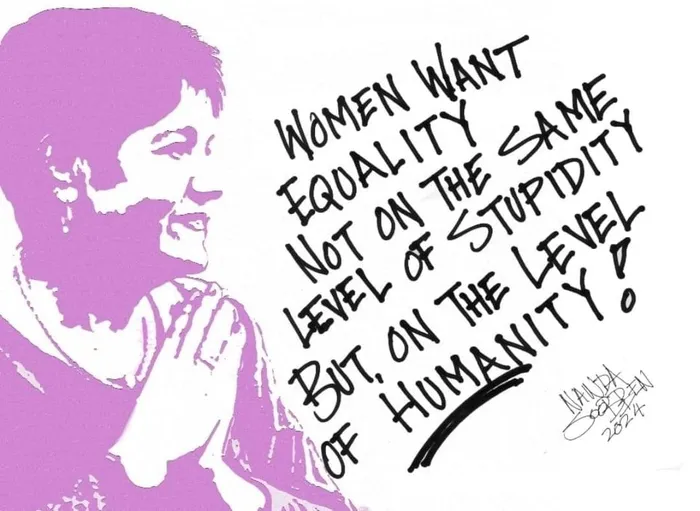 WOMEN WANT
EQUALITY
NOT ON THE SAME
LEVEL OF STUPIDITY
BUT, ON THE LEVEL
OF HUMANITY!
NANDA
SOOBBEN
2024